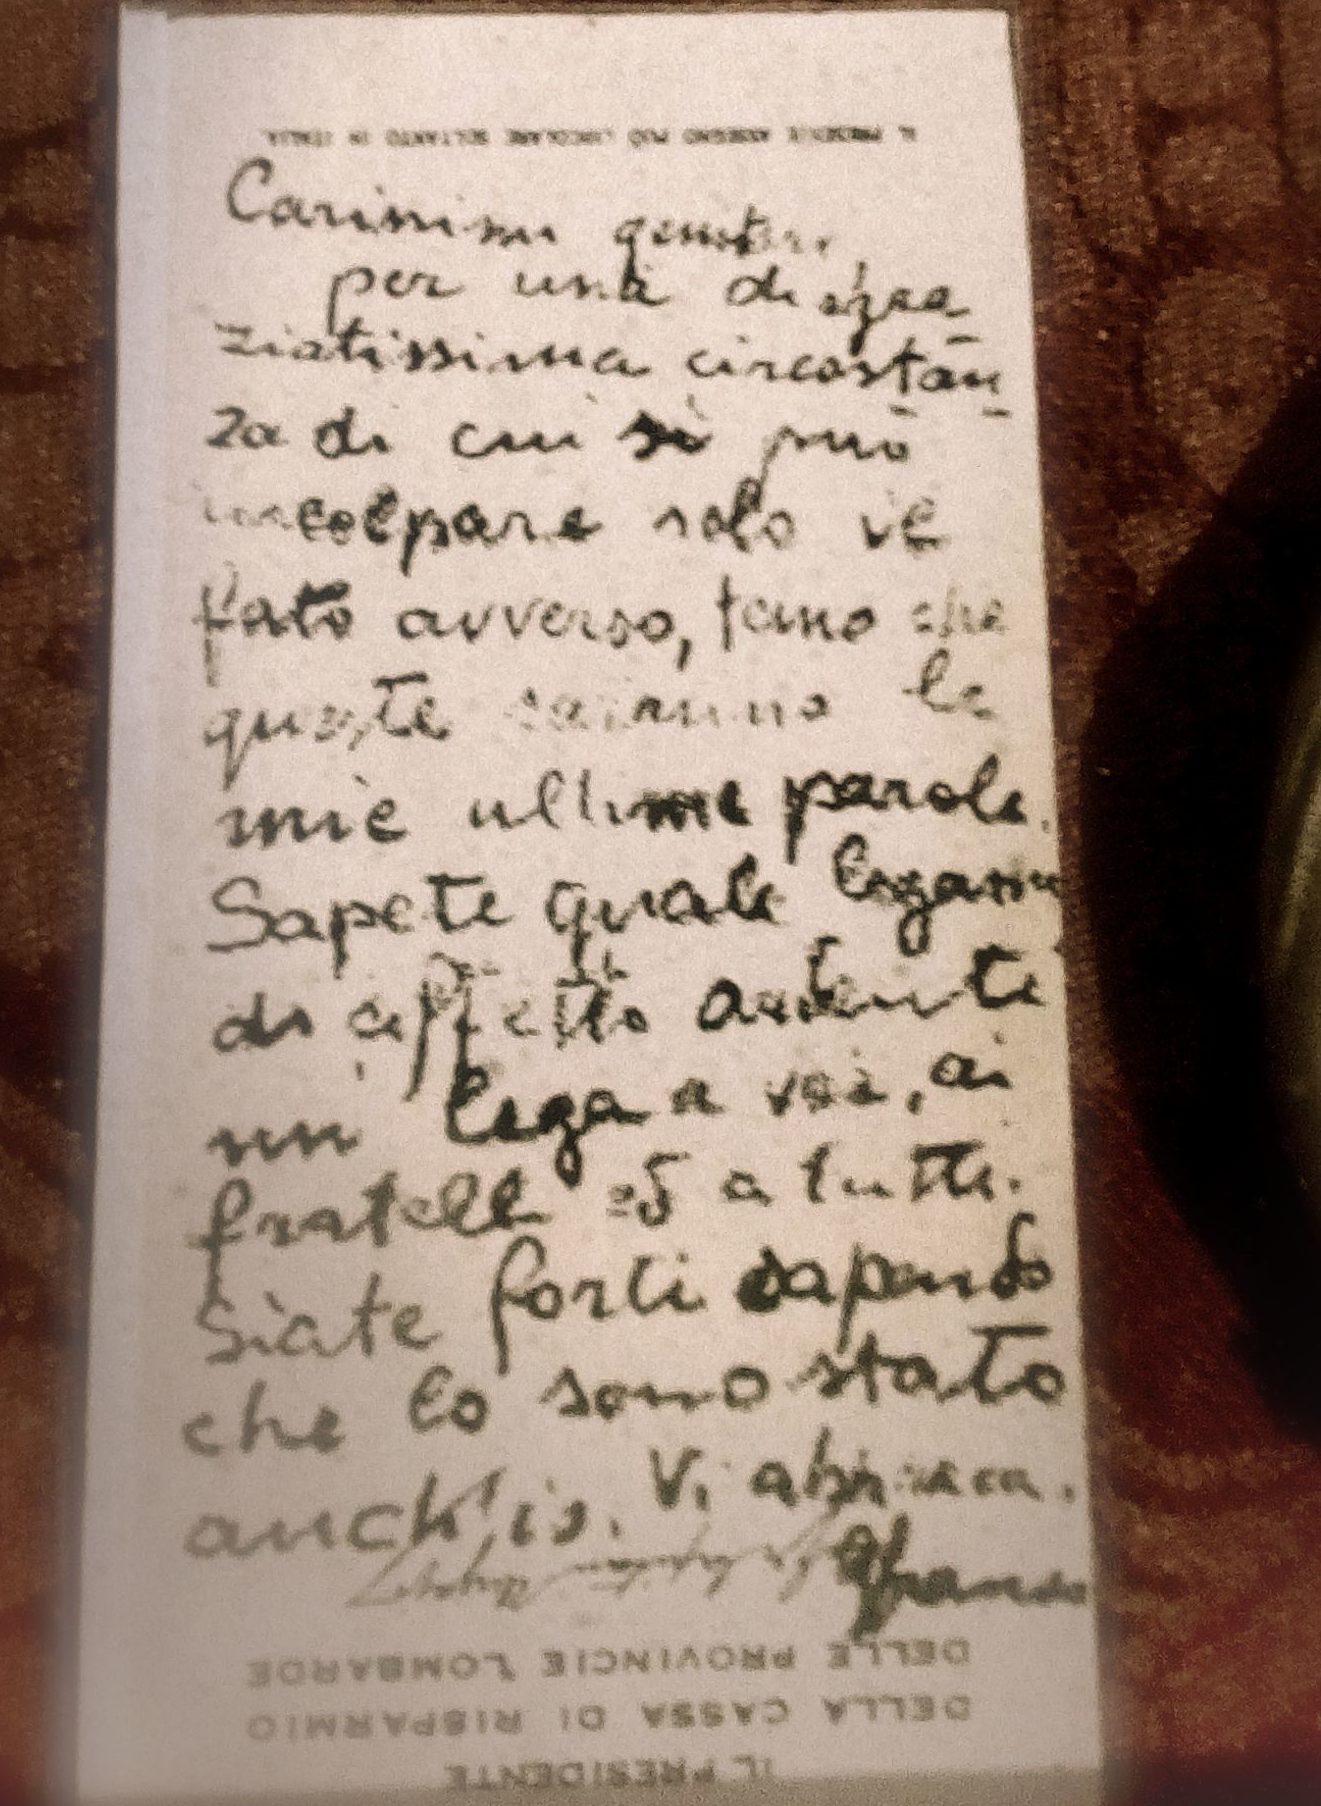 IL PRESENTE ASSEGNO PUÒ CIRCOLARE SOLTANTO IN ITALIA
Carissimi genitori,
per una disgra-
ziatissima circostan-
za di cui si può
incolpare solo il
fato avverso, temo che
queste saranno le
mie ultime parole.
Sapete quale legame
di affetto ardente
mi lega a voi, ai
fratelli ed a tutti.
Siate forti sapendo
che lo sono stato
anch'io. Vi abbraccia.
IL PRESIDENTE
DELLA CASSA DI RISPARMIO
DELLE PROVINCIE LOMBARDE